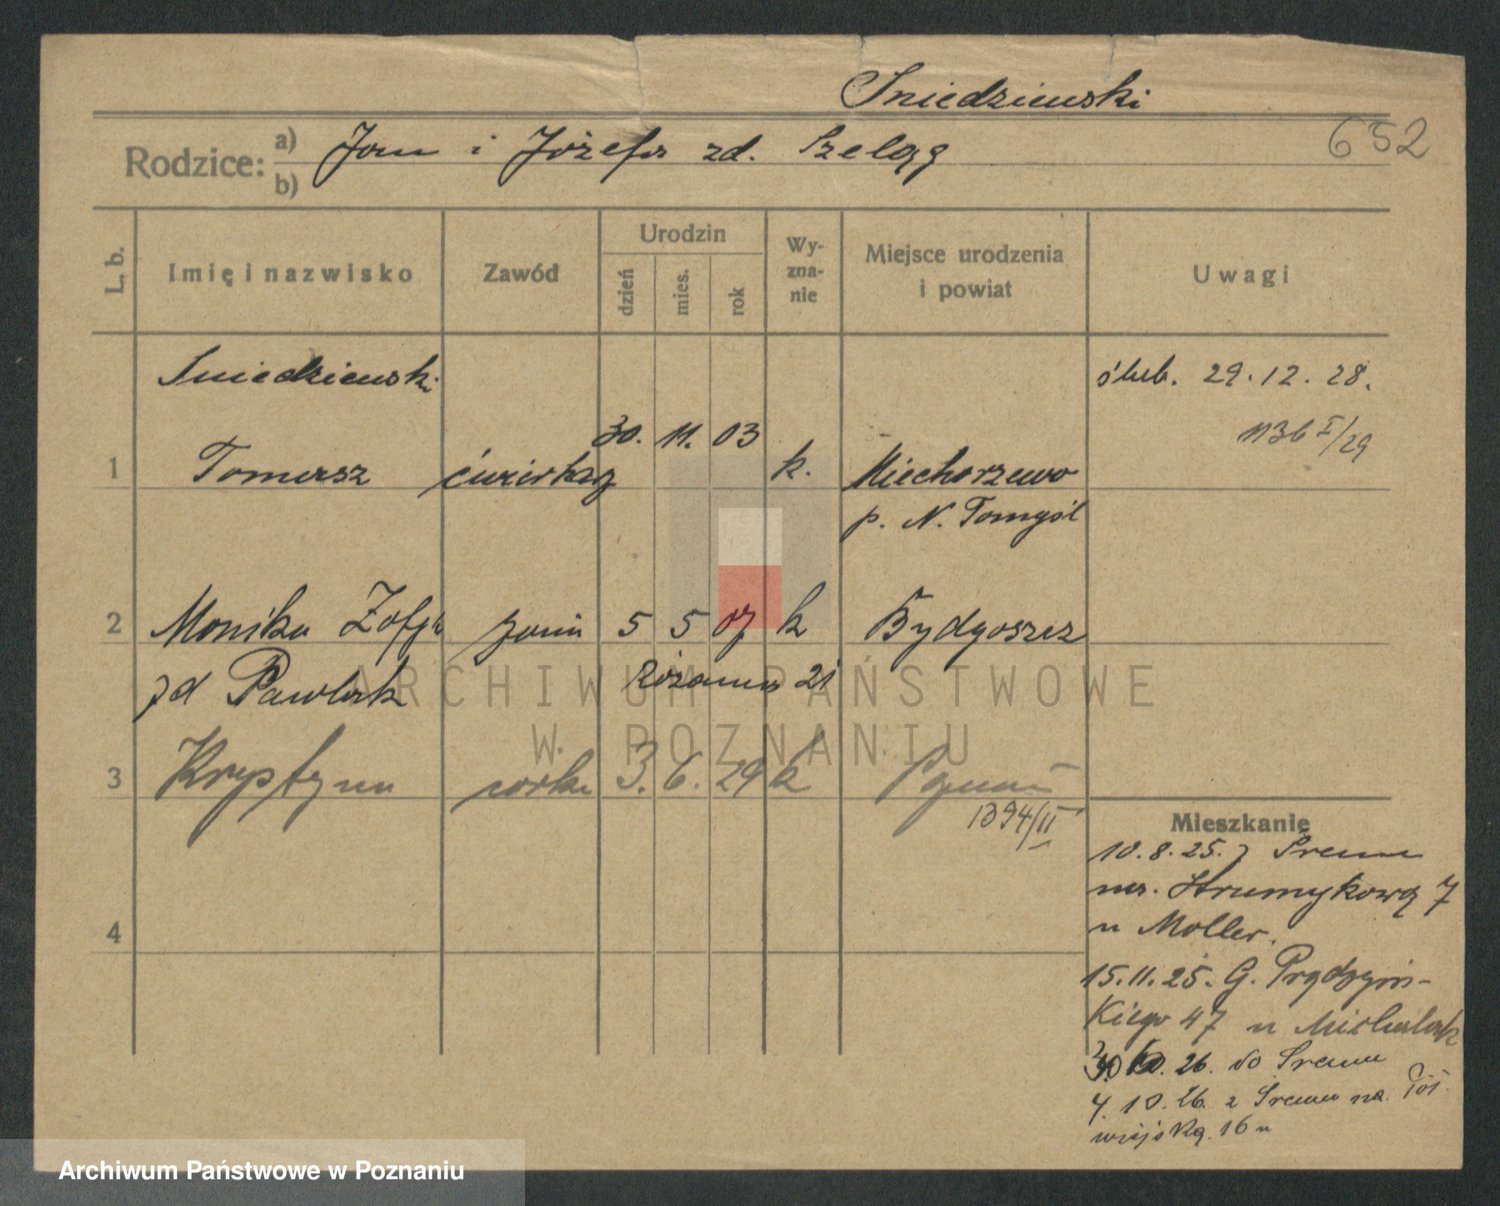 Sniedziewski
652
Rodzice: a) Jan i Józefa zd. Szeląg
b)
L. b.
Imię i nazwisko
Zawód
Urodzin
dzień
mies.
rok
Wy-
zna-
nie
Miejsce urodzenia
i powiat
Uwagi
Sniedziewski
ślub. 29.12.28.
30. 11. 03
1136 I/29
1 Tomasz k. Miechorzewo
p. N. Tomyśl
2 Monika Zofja żona 5 5 07 k Bydgoszcz
zd Pawlak Różana 21
3 Krystyna córka 3. 6. 29 k Poznań
1394/II
4
Mieszkanie
10.8.25. z Śremu
na. Strumykową 7
u Moller.
15.11.25. G. Prądzyń-
kiego 47 u Michalak
26. do Śremu
4. 10. 26. z Śremu na
wiejską. 16 u
ARCHIWUM PAŃSTWOWE
W POZNANIU
Archiwum Państwowe w Poznaniu